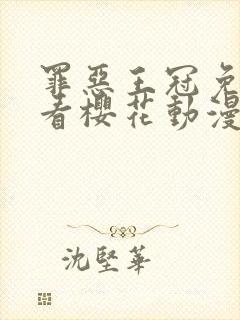 罪惡王冠免
看櫻花動漫
沈堅華